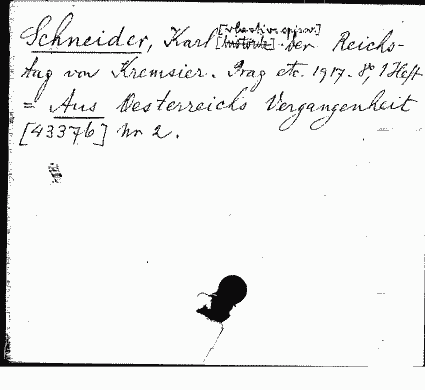 Schneider, Karl [historik]. Der Reichs-
tag von Kremsier. Prag etc. 1917. 8°, 1 Heft
= Aus Oesterreichs Vergangenheit
[43376] Nr 2.